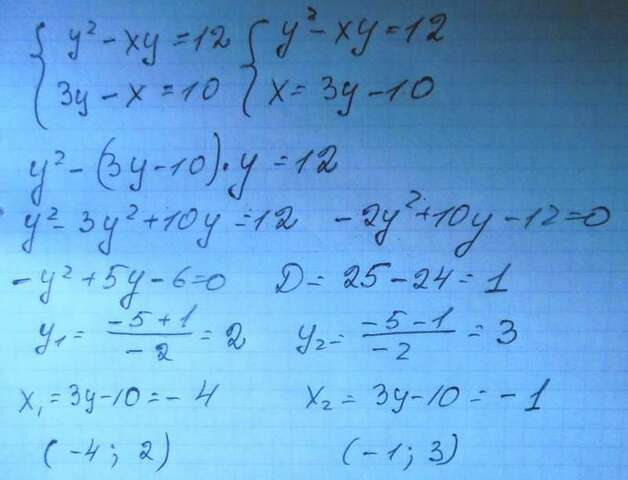 { y² - xy = 12 { y² - xy = 12
{ 3y - x = 10 { x = 3y - 10
y² - (3y - 10) · y = 12
y² - 3y² + 10y = 12 -2y² + 10y - 12 = 0
-y² + 5y - 6 = 0 D = 25 - 24 = 1
y₁ = (-5 + 1)/(-2) = 2 y₂ = (-5 - 1)/(-2) = 3
x₁ = 3y - 10 = -4 x₂ = 3y - 10 = -1
(-4; 2) (-1; 3)